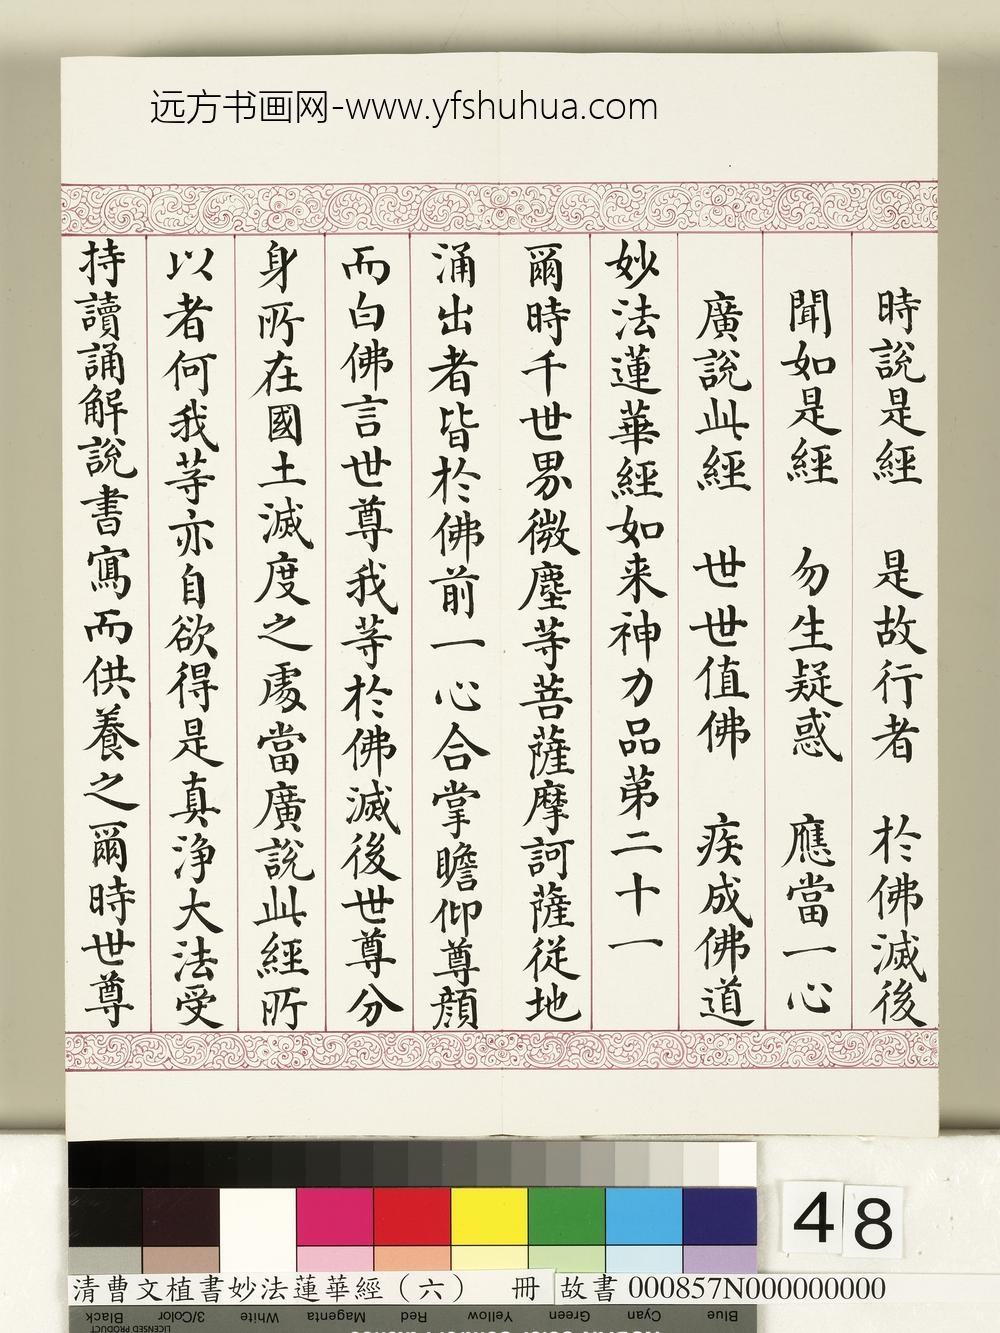 远方书画网-www.yfshuhua.com
時說是經　是故行者　於佛滅後
聞如是經　勿生疑惑　應當一心
廣說此經　世世值佛　疾成佛道
妙法蓮華經如来神力品第二十一
爾時千世界微塵等菩薩摩訶薩從地
涌出者皆於佛前一心合掌瞻仰尊顏
而白佛言世尊我等於佛滅後世尊分
身所在國土滅度之處當廣說此經所
以者何我等亦自欲得是真淨大法受
持讀誦解說書寫而供養之爾時世尊
48
清曹文植書妙法蓮華經（六）　冊　故書 000857N000000000
Black 3/Color White Magenta Red Yellow Green Cyan Blue
LICENSED PRODUCT